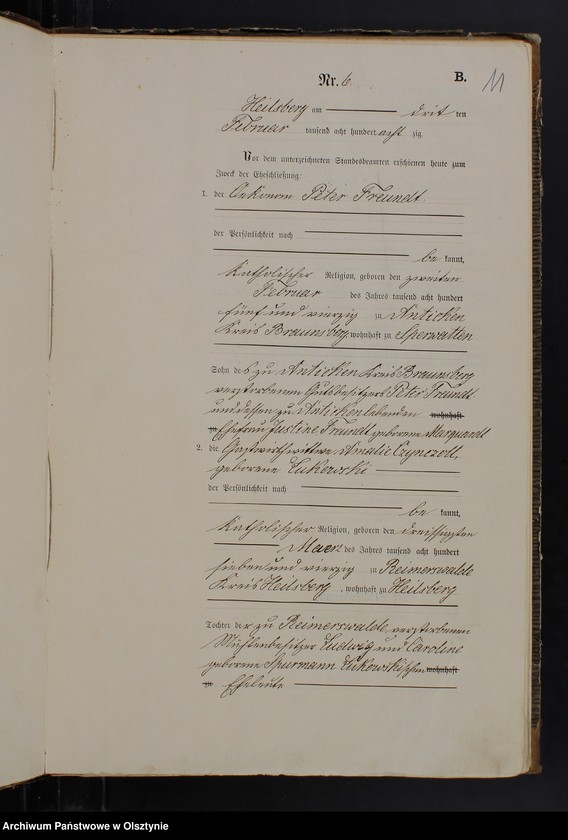 Nr. 6.
B.
11
Heilsberg am dritten
Februar tausend acht hundert achtzig.
Vor dem unterzeichneten Standesbeamten erschienen heute zum
Zweck der Eheschließung:
1. der Oekonom Peter Freundt
der Persönlichkeit nach
bekannt,
katholischer Religion, geboren den zweiten
Februar des Jahres tausend acht hundert
fünf und vierzig zu Anticken
Kreis Braunsberg, wohnhaft zu Sperwatten
Sohn des zu Anticken Kreis Braunsberg
verstorbenen Gutsbesitzers Peter Freundt
und dessen zu Anticken lebenden wohnhaft
zu Ehefrau Justine Freundt geborene Marquardt
2. die Gastwirthswittwe Amalie
geborene Lukowski
der Persönlichkeit nach
bekannt,
katholischer Religion, geboren den dreissigsten
des Jahres tausend acht hundert
sieben und vierzig zu Reimerswalde
Kreis Heilsberg, wohnhaft zu Heilsberg
Tochter der zu Reimerswalde verstorbenen
Mühlenbesitzer Ludwig und Caroline
geborene Spurmann Lukowskischen wohnhaft
zu Eheleute
Archiwum Państwowe w Olsztynie